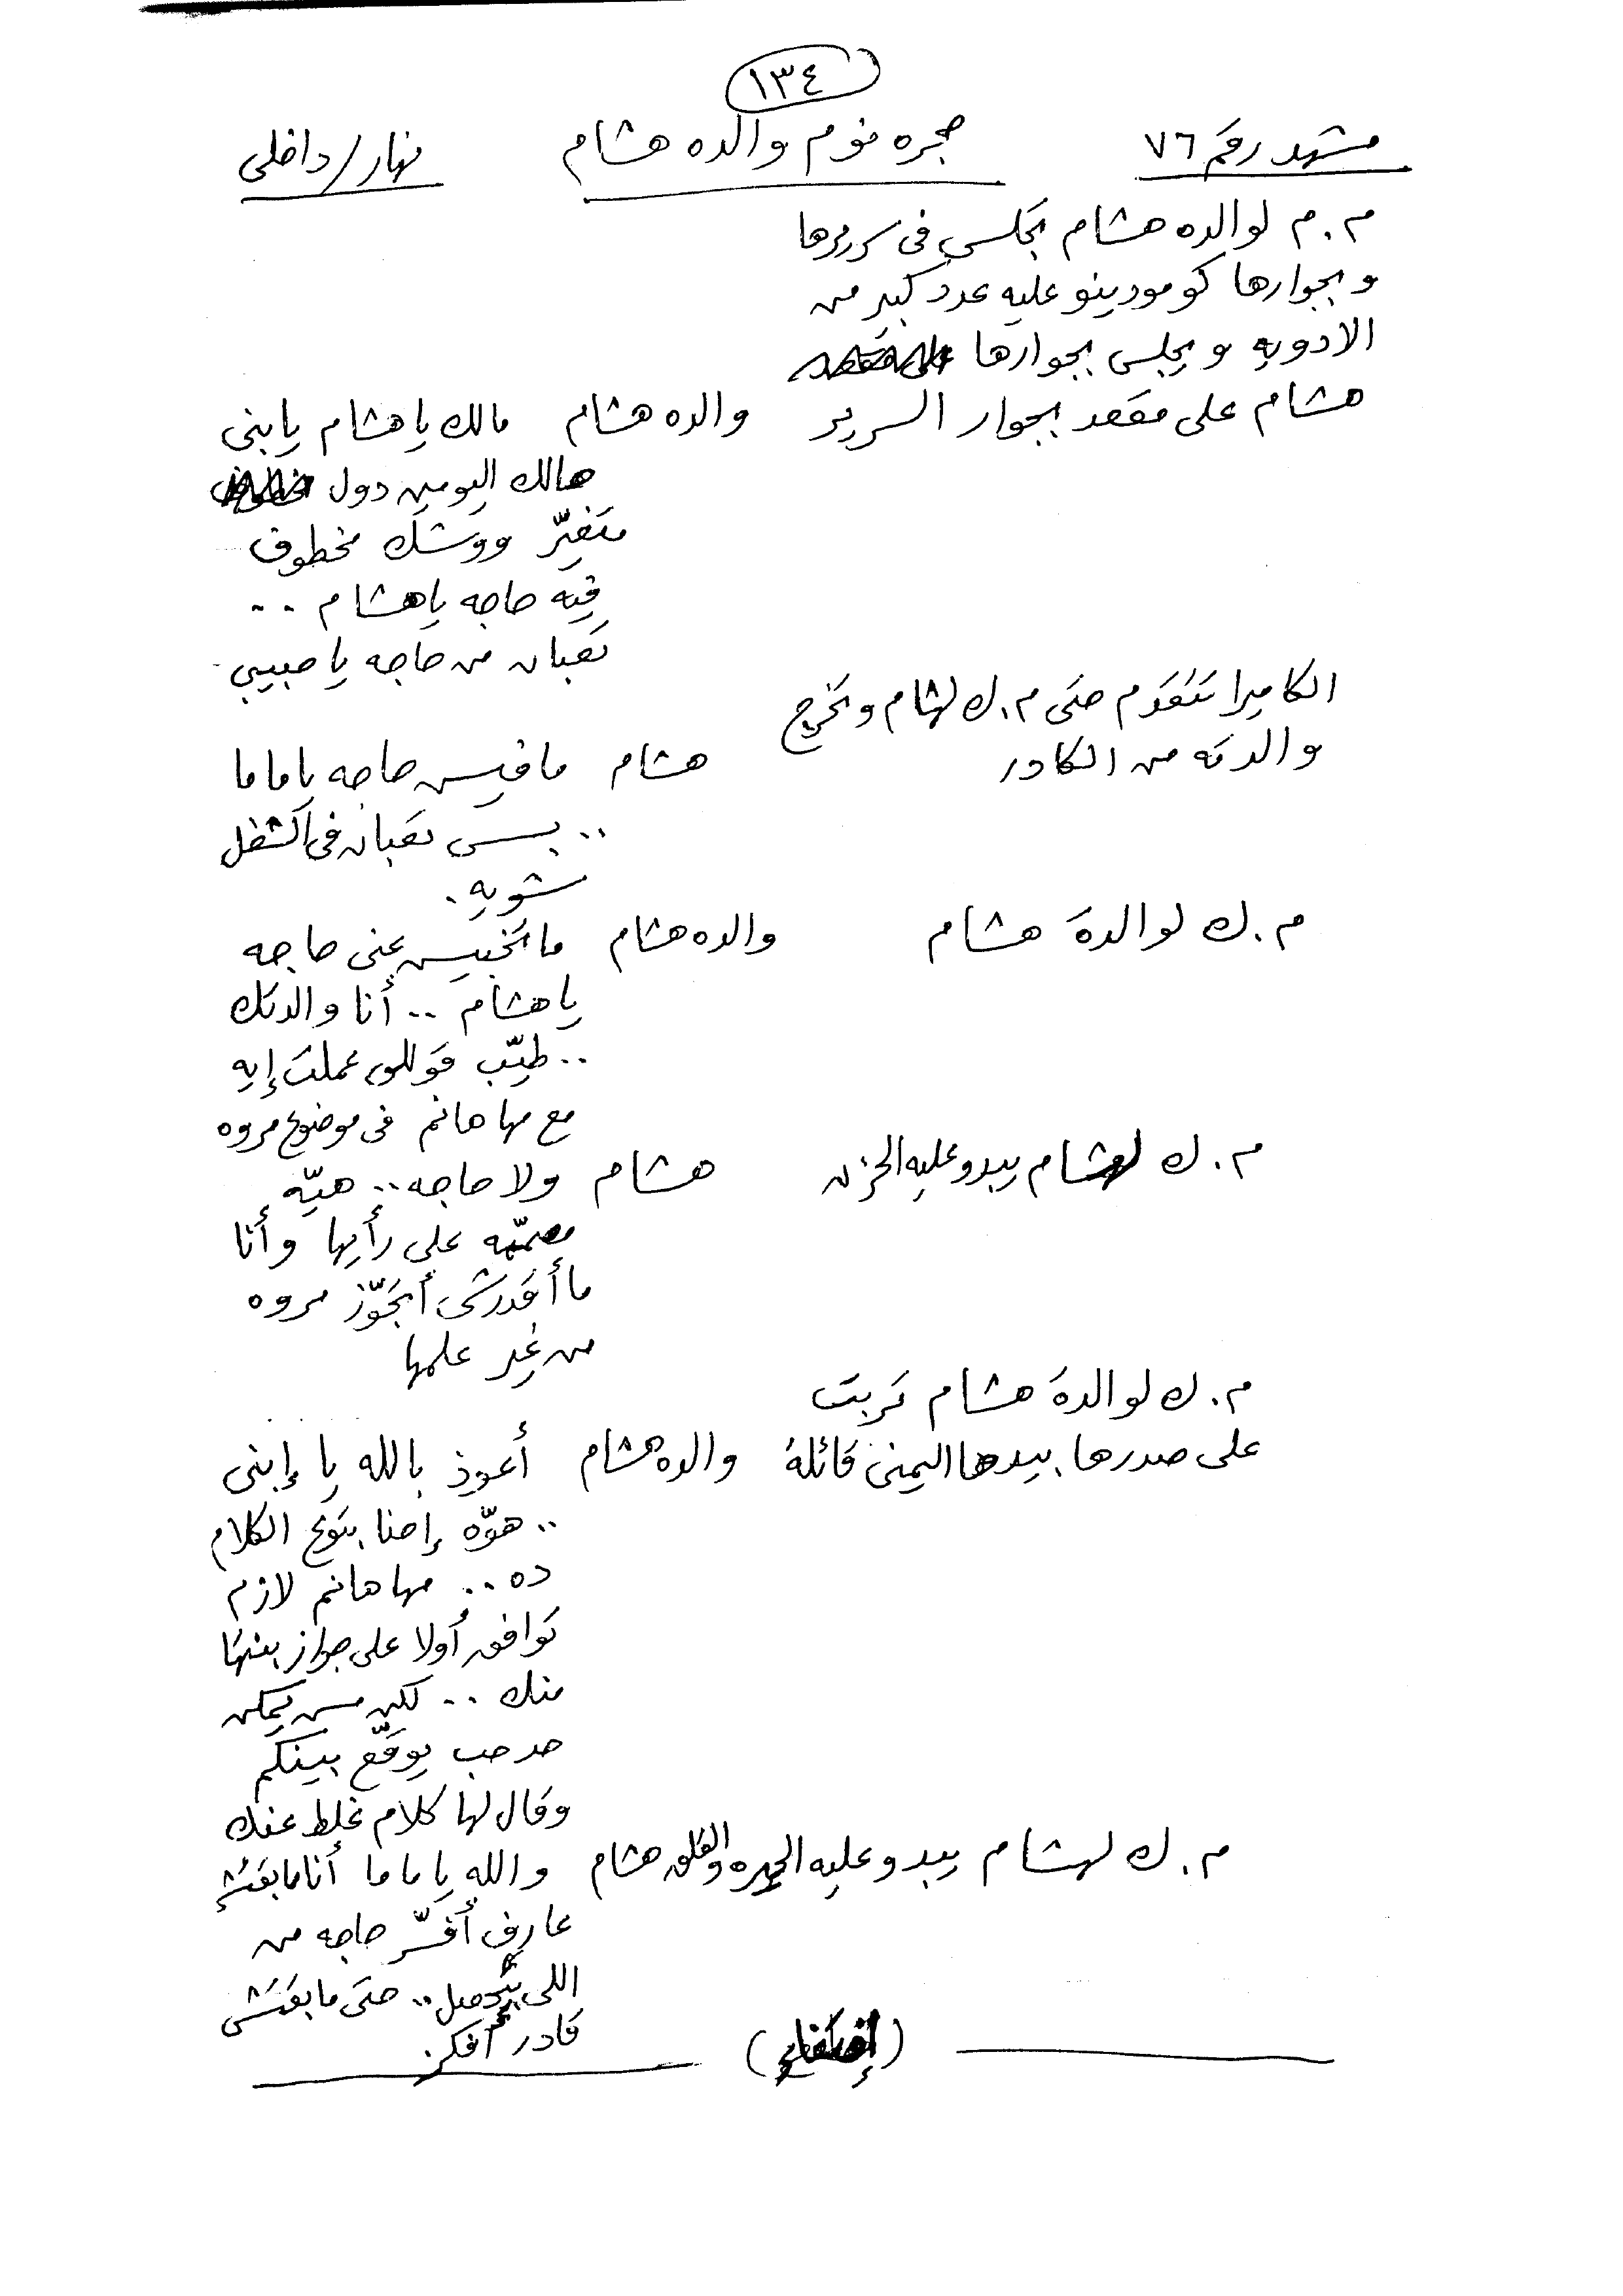 ١٣٤
مشهد رقم ٧٦ حجره نوم والده هشام نهار/داخلى
م.م لوالده هشام تجلس فى سريرها
وبجوارها كومودينو عليه عدد كبير من
الادويه ويجلس بجوارها
هشام على مقعد بجوار السرير والده هشام مالك يا هشام يابنى
مالك اليومين دول
متغيّر ووشك مخطوف
فيه حاجه ياهشام ..
تعبان من حاجه يا حبيبى
الكاميرا تتقدم حتى م.ك لهشام وتخرج
والدته من الكادر هشام مافيش حاجه ياماما
.. بس تعبان فى الشغل
شويه .
م.ك لوالدة هشام والده هشام ماتخبيش عنى حاجه
ياهشام .. أنا والدتك
.. طيّب قوللى عملت إيه
مع مها هانم فى موضوع مروه
م.ك لهشام يبدو عليه الحزن هشام ولا حاجه .. هيّه
مصمّمه على رأيها وأنا
ما أقدرش أتجوّز مروه
من غير علمها
م.ك لوالدة هشام تربت
على صدرها بيدها اليمنى قائلة والده هشام أعوذ بالله يا إبنى
.. هوّه إحنا بتوع الكلام
ده .. مها هانم لازم
توافق أولا على جواز بنتها
منك .. لكن مش يمكن
حد حب يوقّع بينكم
وقال لها كلام غلط عنك
م.ك لهشام يبدو عليه الحيره والقلق هشام والله يا ماما أنا مابقتش
عارف أفسّر حاجه من
اللى بتحصل .. حتى مابقتش
قادر أفكر .